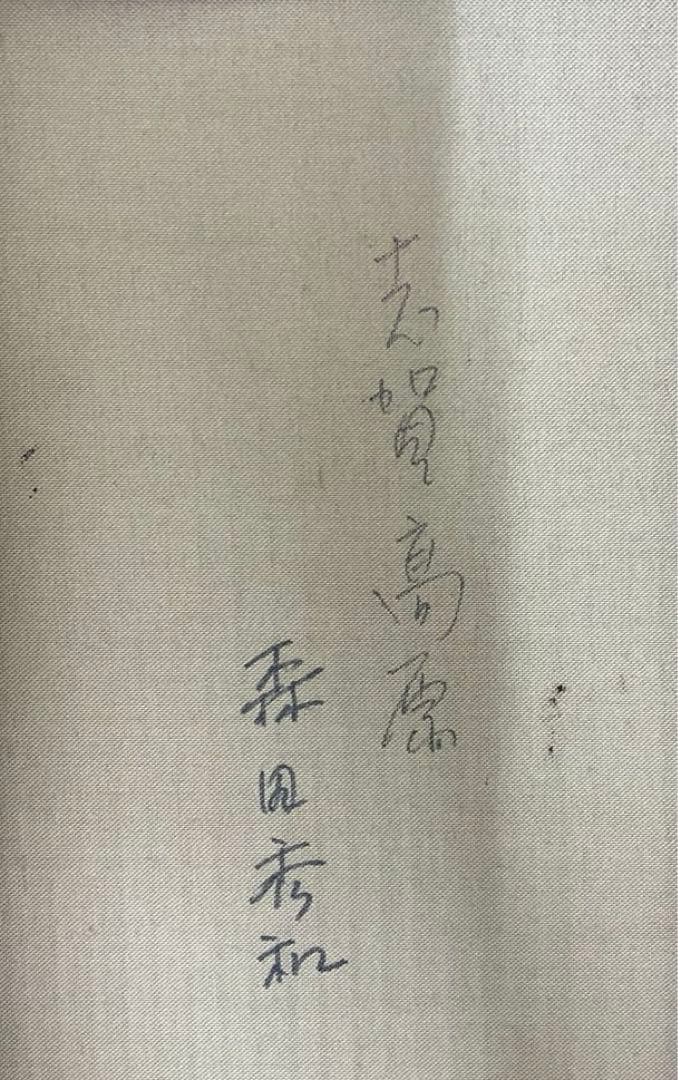 志賀高原
森田秀和